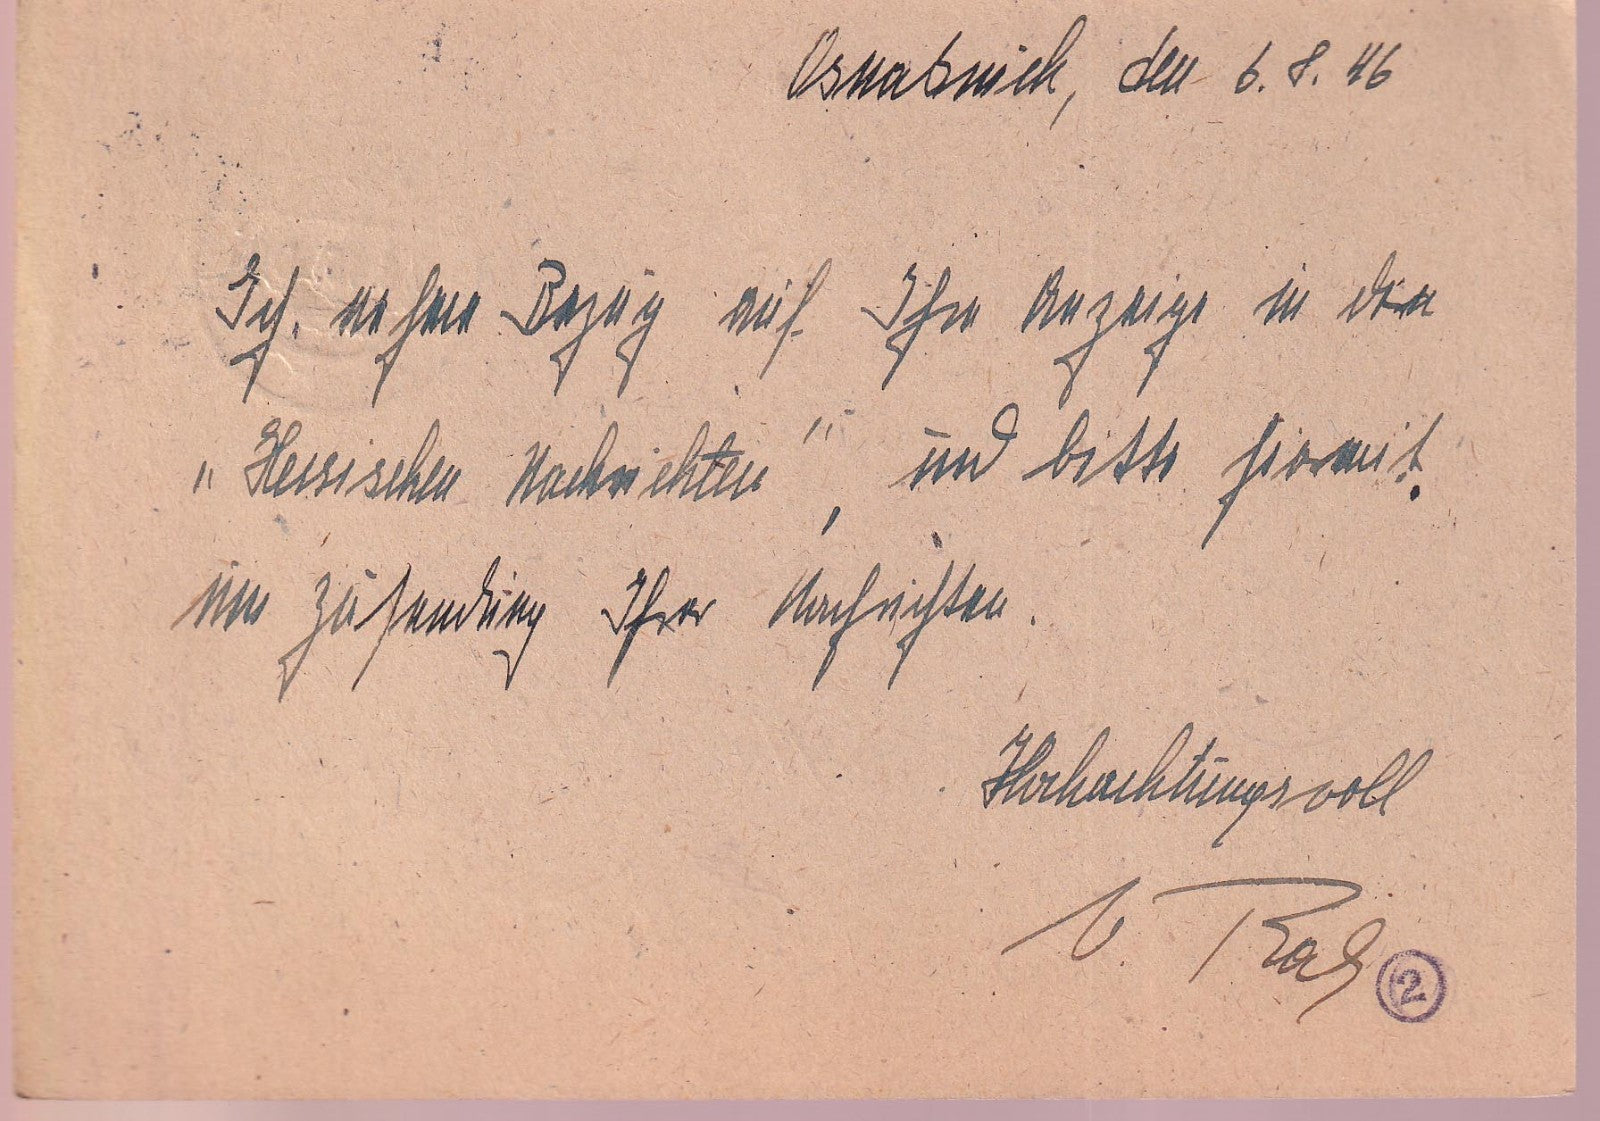 Osnabrück, den 6. 8. 46
Ich nehme Bezug auf Ihre Anzeige in den
„Hessischen Nachrichten“, und bitte hiermit
um Zusendung Ihrer Nachrichten.
Hochachtungsvoll
2